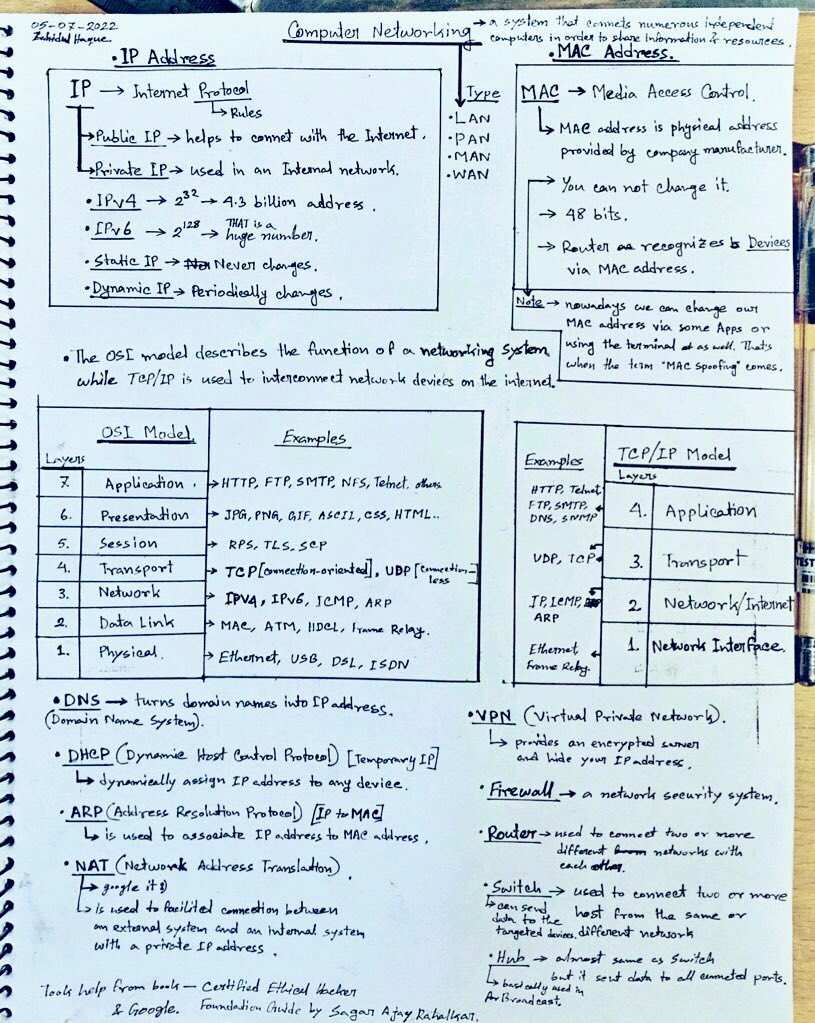 05-07-2022
Zahidul Haque
Computer Networking → a system that connets numerous independent
computers in order to share information & resources.
• IP Address
IP → Internet Protocol
↳ Rules
→ Public IP → helps to connet with the Internet.
→ Private IP → used in an Internal network.
• IPv4 → 2^32 → 4.3 billion address.
• IPv6 → 2^128 → THAT is a
huge number.
• Static IP → Never changes.
• Dynamic IP → Periodically changes.
Type
• LAN
• PAN
• MAN
• WAN
• MAC Address.
MAC → Media Access Control.
↳ MAC address is physical address
provided by company manufacturer.
→ You can not change it.
→ 48 bits.
→ Router recognizes Devices
via MAC address.
Note → nowadays we can change our
MAC address via some Apps or
using the terminal as well. That's
when the term "MAC spoofing" comes.
• The OSI model describes the function of a networking system,
while TCP/IP is used to interconnect network devices on the internet.
OSI Model Examples
Layers
7. Application. → HTTP, FTP, SMTP, NFS, Telnet, others
6. Presentation → JPG, PNG, GIF, ASCII, CSS, HTML..
5. Session → RPS, TLS, SCP
4. Transport → TCP [connection-oriented], UDP [connection-
less]
3. Network → IPV4, IPV6, ICMP, ARP
2. Data Link → MAC, ATM, HDCL, Frame Relay.
1. Physical. → Ethernet, USB, DSL, ISDN
Examples TCP/IP Model
Layers
HTTP, Telnet
FTP, SMTP, ← 4. Application
DNS, SNMP
UDP, TCP ← 3. Transport
IP, ICMP, ← 2. Network/Internet
ARP
Ethernet, ← 1. Network Interface.
Frame Relay.
• DNS → turns domain names into IP address.
(Domain Name System).
• DHCP (Dynamic Host Control Protocol) [Temporary IP]
↳ dynamically assign IP address to any device.
• ARP (Address Resolution Protocol) [IP to MAC]
↳ is used to assosiate IP address to MAC address.
• NAT (Network Address Translation).
↳ google it :)
↳ is used to facilited connection between
an external system and an internal system
with a private IP address.
Took help from book — Certified Ethical Hacker
& Google. Foundation Guide by Sagar Ajay Rahalkar.
• VPN (Virtual Private Network).
↳ provides an encrypted server
and hide your IP address.
• Firewall → a network security system.
• Router → used to connect two or more
different networks with
each other.
• Switch → used to connect two or more
↳ can send host from the same or
data to the
targeted devices. different network
• Hub → almost same as Switch
but it sent data to all connected ports.
↳ basically used in
Broadcast.
TEST